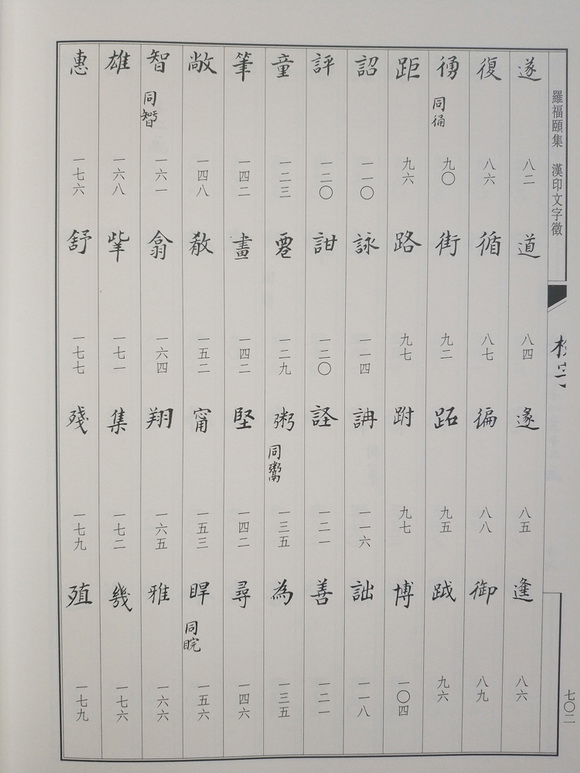 羅福頤集 漢印文字徵
檢字
七〇二
遂 八二 道 八四 遂 八五 逢 八六
復 八六 循 八七 徧 八八 御 八九
徟 同徇 九〇 街 九二 跖 九五 跋 九六
距 九六 路 九七 跗 九七 博 一〇四
詔 一一〇 詠 一一四 詶 一一六 詘 一一八
評 一二〇 詌 一二〇 詮 一二一 善 一二一
童 一二三 䙴 一二九 粥 同鬻 一三五 為 一三五
筆 一四二 畫 一四二 堅 一四二 尋 一四六
敞 一四八 敎 一五二 甯 一五三 睅 同睆 一五六
智 同𥏼 一六一 翕 一六四 翔 一六五 雅 一六六
雄 一六八 羍 一七一 集 一七二 幾 一七六
惠 一七六 舒 一七七 殘 一七九 殖 一七九